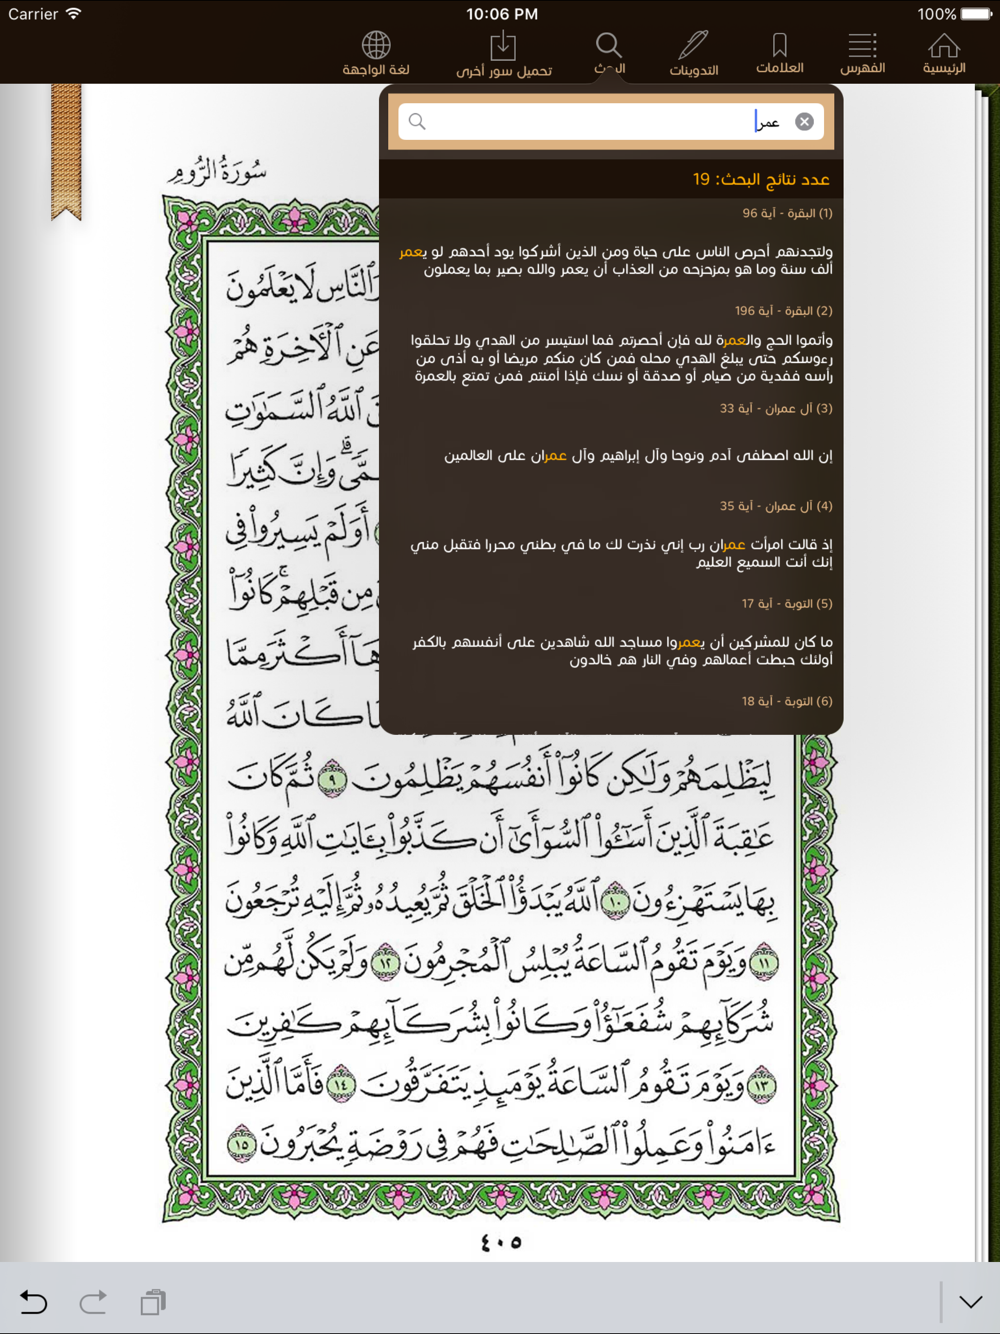 Carrier
10:06 PM
100%
الرئيسية
الفهرس
العلامات
التدوينات
البحث
تحميل سور أخرى
لغة الواجهة
عمر
عدد نتائج البحث: 19
(1) البقرة - آية 96
ولتجدنهم أحرص الناس على حياة ومن الذين أشركوا يود أحدهم لو يعمر
ألف سنة وما هو بمزحزحه من العذاب أن يعمر والله بصير بما يعملون
(2) البقرة - آية 196
وأتموا الحج والعمرة لله فإن أحصرتم فما استيسر من الهدي ولا تحلقوا
رءوسكم حتى يبلغ الهدي محله فمن كان منكم مريضا أو به أذى من
رأسه ففدية من صيام أو صدقة أو نسك فإذا أمنتم فمن تمتع بالعمرة
(3) آل عمران - آية 33
إن الله اصطفى آدم ونوحا وآل إبراهيم وآل عمران على العالمين
(4) آل عمران - آية 35
إذ قالت امرأت عمران رب إني نذرت لك ما في بطني محررا فتقبل مني
إنك أنت السميع العليم
(5) التوبة - آية 17
ما كان للمشركين أن يعمروا مساجد الله شاهدين على أنفسهم بالكفر
أولئك حبطت أعمالهم وفي النار هم خالدون
(6) التوبة - آية 18
سُورَةُ الرُّومِ
ٱلنَّاسِ لَا يَعْلَمُونَ
عَنِ ٱلْأَخِرَةِ هُمْ
ٱللَّهُ ٱلسَّمَٰوَٰتِ
وَإِنَّ كَثِيرًا
أَوَلَمْ يَسِيرُوا۟ فِى
مِن قَبْلِهِمْ ۚ كَانُوٓا۟
أَكْثَرَ مِمَّا
كَانَ ٱللَّهُ
لِيَظْلِمَهُمْ وَلَٰكِن كَانُوٓا۟ أَنفُسَهُمْ يَظْلِمُونَ ٩ ثُمَّ كَانَ
عَٰقِبَةَ ٱلَّذِينَ أَسَٰٓـُٔوا۟ ٱلسُّوٓأَىٰٓ أَن كَذَّبُوا۟ بِـَٔايَٰتِ ٱللَّهِ وَكَانُوا۟
بِهَا يَسْتَهْزِءُونَ ١٠ ٱللَّهُ يَبْدَؤُا۟ ٱلْخَلْقَ ثُمَّ يُعِيدُهُۥ ثُمَّ إِلَيْهِ تُرْجَعُونَ
١١ وَيَوْمَ تَقُومُ ٱلسَّاعَةُ يُبْلِسُ ٱلْمُجْرِمُونَ ١٢ وَلَمْ يَكُن لَّهُم مِّن
شُرَكَآئِهِمْ شُفَعَٰٓؤُا۟ وَكَانُوا۟ بِشُرَكَآئِهِمْ كَٰفِرِينَ
١٣ وَيَوْمَ تَقُومُ ٱلسَّاعَةُ يَوْمَئِذٍ يَتَفَرَّقُونَ ١٤ فَأَمَّا ٱلَّذِينَ
ءَامَنُوا۟ وَعَمِلُوا۟ ٱلصَّٰلِحَٰتِ فَهُمْ فِى رَوْضَةٍ يُحْبَرُونَ ١٥
٤٠٥